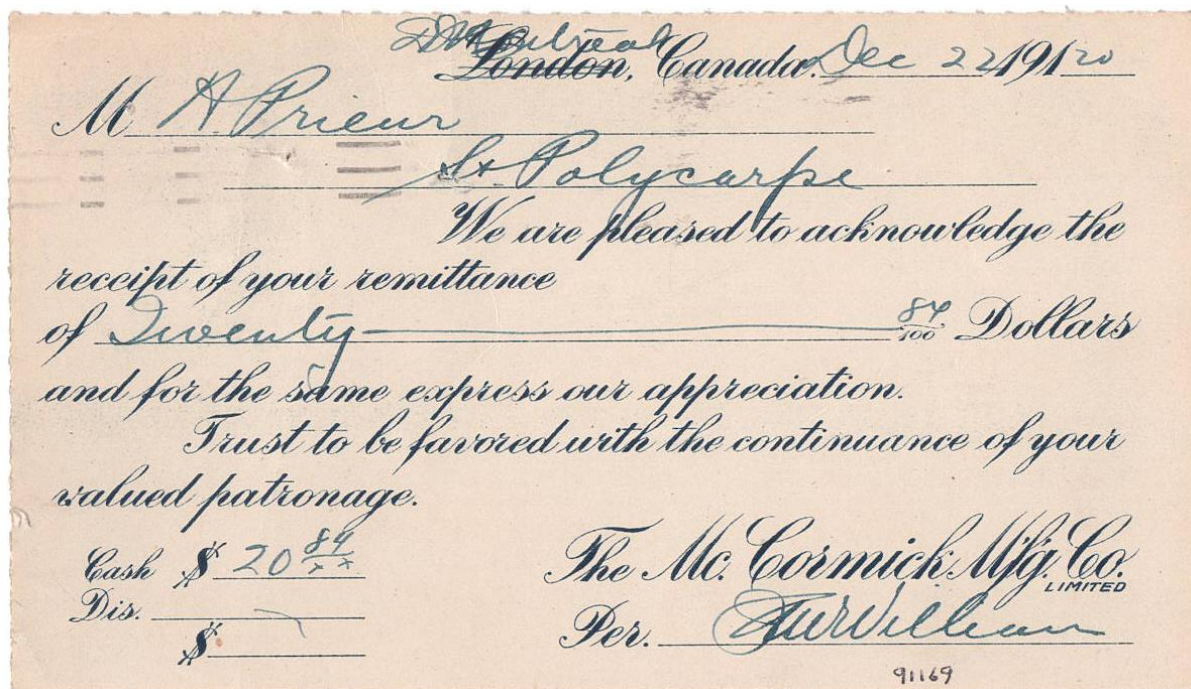 Montreal
London, Canada. Dec 22 191 20
M A Prieur
St. Polycarpe
We are pleased to acknowledge the
receipt of your remittance
of Twenty 84/100 Dollars
and for the same express our appreciation.
Trust to be favored with the continuance of your
valued patronage.
Cash $ 20 84/xx
Dis.
$
The Mc. Cormick Mfg. Co.
LIMITED
Per.
91169